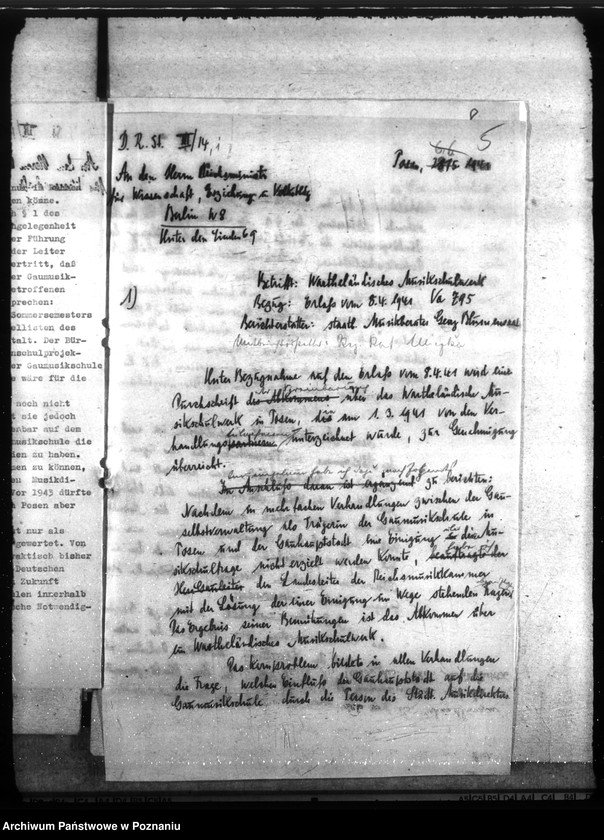 8
5
D. R. St. III/14,
Posen, 1941
An den Herrn Reichsminister
für Wissenschaft, Erziehung u. Volksbildg
Berlin W 8
Unter den Linden 69
1)
Betrifft: Wartheländisches Musikschulwerk
Bezug: Erlaß vom 8.4.1941 Va 895
Berichterstatter: staatl. Musikberater Georg Blumensaat
Unter Bezugnahme auf den Erlaß vom 8.4.41 wird eine
Durchschrift des Abkommens über das Wartheländische Mu-
sikschulwerk in Posen, am 1.3.1941 von den Ver-
handlungspartnern unterzeichnet wurde, zur Genehmigung
überreicht.
Im Anschluß daran ist ergänzend zu berichten:
Nachdem in mehrfachen Verhandlungen zwischen der Gau-
selbstverwaltung als Trägerin der Gaumusikschule in
Posen und der Gauhauptstadt eine Einigung die Mu-
sikschulfrage nicht erzielt werden konnte, beauftragte der
Herr Gauleiter den Landesleiter der Reichsmusikkammer
mit der Lösung der einer Einigung im Wege stehenden Fragen
Das Ergebnis seiner Bemühungen ist das Abkommen über
ein Wartheländisches Musikschulwerk.
Das Kernproblem bildete in allen Verhandlungen
die Frage, welchen Einfluß die Gauhauptstadt auf die
Gaumusikschule durch die Person des Städt. Musikdirektors
en könne.
§ 1 des
gelegenheit
er Führung
der Leiter
ertritt, daß
er Gaumusik-
etroffenen
prechen:
Sommersemesters
ellisten des
talt. Der Bür-
nschulprojek-
er Gaumusikschule
e wäre für die
noch nicht
t sie jedoch
enbar auf dem
musikschule die
ien zu haben.
nen zu können,
zu Musikdi-
Vor 1943 dürfte
n Posen aber
st nur als
gewertet. Von
raktisch bisher
Deutschen
Zukunft
alen innerhalb
sche Notwendig-
Archiwum Państwowe w Poznaniu